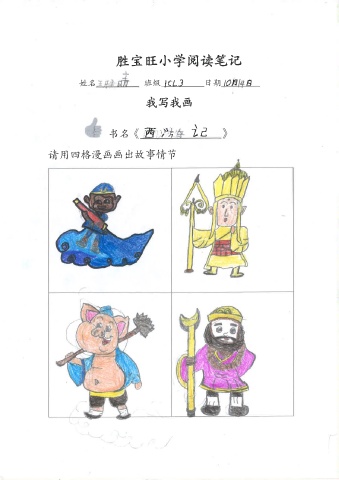 胜宝旺小学阅读笔记
姓名 班级 1CL3 日期 10月14日
我写我画
书名《西游记》
请用四格漫画画出故事情节